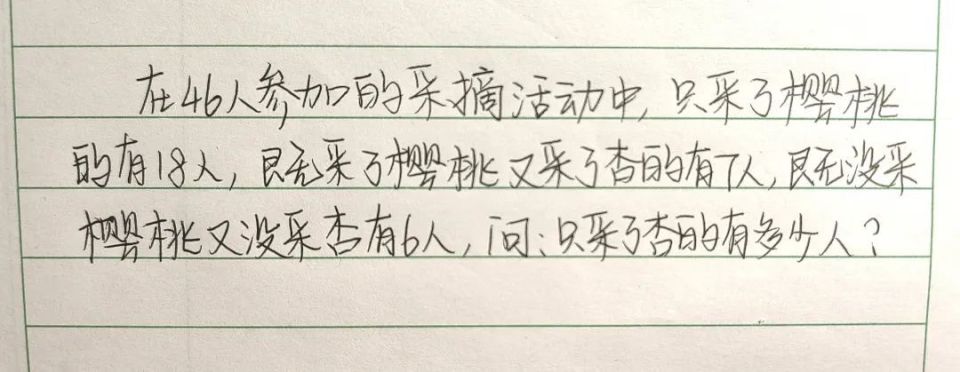 在46人参加的采摘活动中,只采了樱桃
的有18人,既采了樱桃又采了杏的有7人,既没采
樱桃又没采杏有6人,问:只采了杏的有多少人?